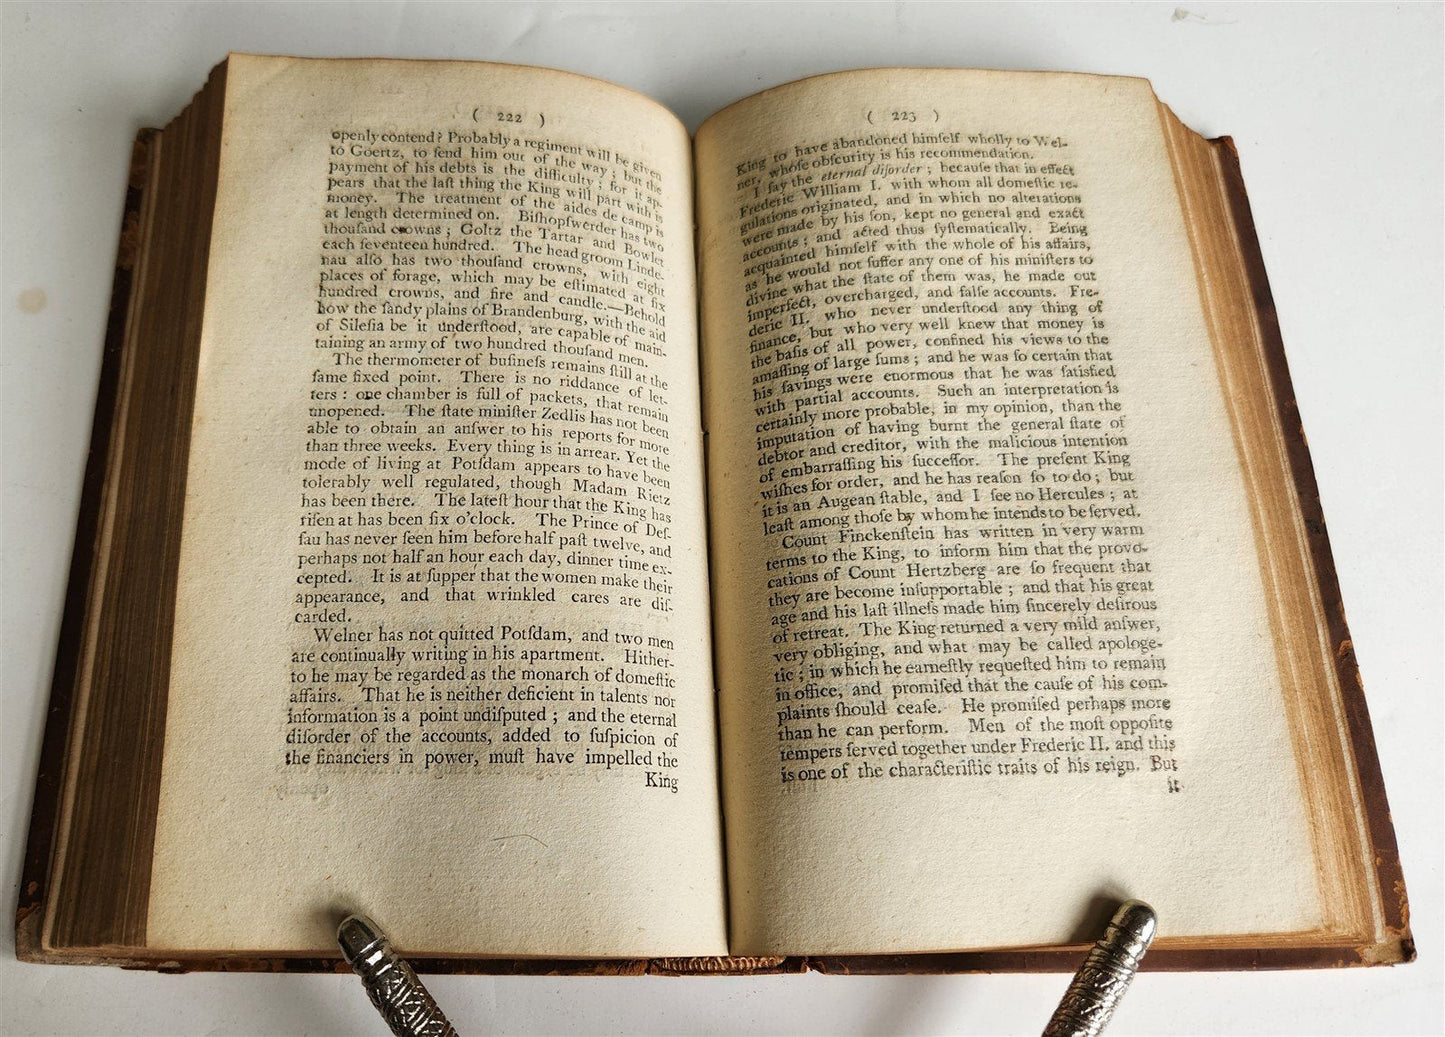 ( 222 )
openly contend? Probably a regiment will be given
to Goertz, to ſend him out of the way; but the
payment of his debts is the difficulty; for it ap-
pears that the laſt thing the King will part with is
money. The treatment of the aides de camp is
at length determined on. Biſhopſwerder has two
thouſand crowns; Goltz the Tartar and Bowlet
each ſeventeen hundred. The head groom Linde-
nau alſo has two thouſand crowns, with eight
places of forage, which may be eſtimated at ſix
hundred crowns, and fire and candle.—Behold
how the ſandy plains of Brandenburg, with the aid
of Sileſia be it underſtood, are capable of main-
taining an army of two hundred thouſand men.
The thermometer of buſineſs remains ſtill at the
ſame fixed point. There is no riddance of let-
ters: one chamber is full of packets, that remain
unopened. The ſtate miniſter Zedlis has not been
able to obtain an anſwer to his reports for more
than three weeks. Every thing is in arrear. Yet the
mode of living at Potſdam appears to have been
tolerably well regulated, though Madam Rietz
has been there. The lateſt hour that the King has
riſen at has been ſix o'clock. The Prince of Deſ-
ſau has never ſeen him before half paſt twelve, and
perhaps not half an hour each day, dinner time ex-
cepted. It is at ſupper that the women make their
appearance, and that wrinkled cares are diſ-
carded.
Welner has not quitted Potſdam, and two men
are continually writing in his apartment. Hither-
to he may be regarded as the monarch of domeſtic
affairs. That he is neither deficient in talents nor
information is a point undiſputed; and the eternal
diſorder of the accounts, added to ſuſpicion of
the financiers in power, muſt have impelled the
King
( 223 )
King to have abandoned himſelf wholly to Wel-
ner, whoſe obſcurity is his recommendation.
I ſay the eternal diſorder; becauſe that in effect
Frederic William I. with whom all domeſtic re-
gulations originated, and in which no alterations
were made by his ſon, kept no general and exact
accounts; and acted thus ſyſtematically. Being
acquainted himſelf with the whole of his affairs,
as he would not ſuffer any one of his miniſters to
divine what the ſtate of them was, he made out
imperfect, overcharged, and falſe accounts. Fre-
deric II. who never underſtood any thing of
finance, but who very well knew that money is
the baſis of all power, confined his views to the
amaſſing of large ſums; and he was ſo certain that
his ſavings were enormous that he was ſatisfied
with partial accounts. Such an interpretation is
certainly more probable, in my opinion, than the
imputation of having burnt the general ſtate of
debtor and creditor, with the malicious intention
of embarraſſing his ſucceſſor. The preſent King
wiſhes for order, and he has reaſon ſo to do; but
it is an Augean ſtable, and I ſee no Hercules; at
leaſt among thoſe by whom he intends to be ſerved.
Count Finckenſtein has written in very warm
terms to the King, to inform him that the provo-
cations of Count Hertzberg are ſo frequent that
they are become inſupportable; and that his great
age and his laſt illneſs made him ſincerely deſirous
of retreat. The King returned a very mild anſwer,
very obliging, and what may be called apologe-
tic; in which he earneſtly requeſted him to remain
in office, and promiſed that the cauſe of his com-
plaints ſhould ceaſe. He promiſed perhaps more
than he can perform. Men of the moſt oppoſite
tempers ſerved together under Frederic II. and this
is one of the characteriſtic traits of his reign. But
it